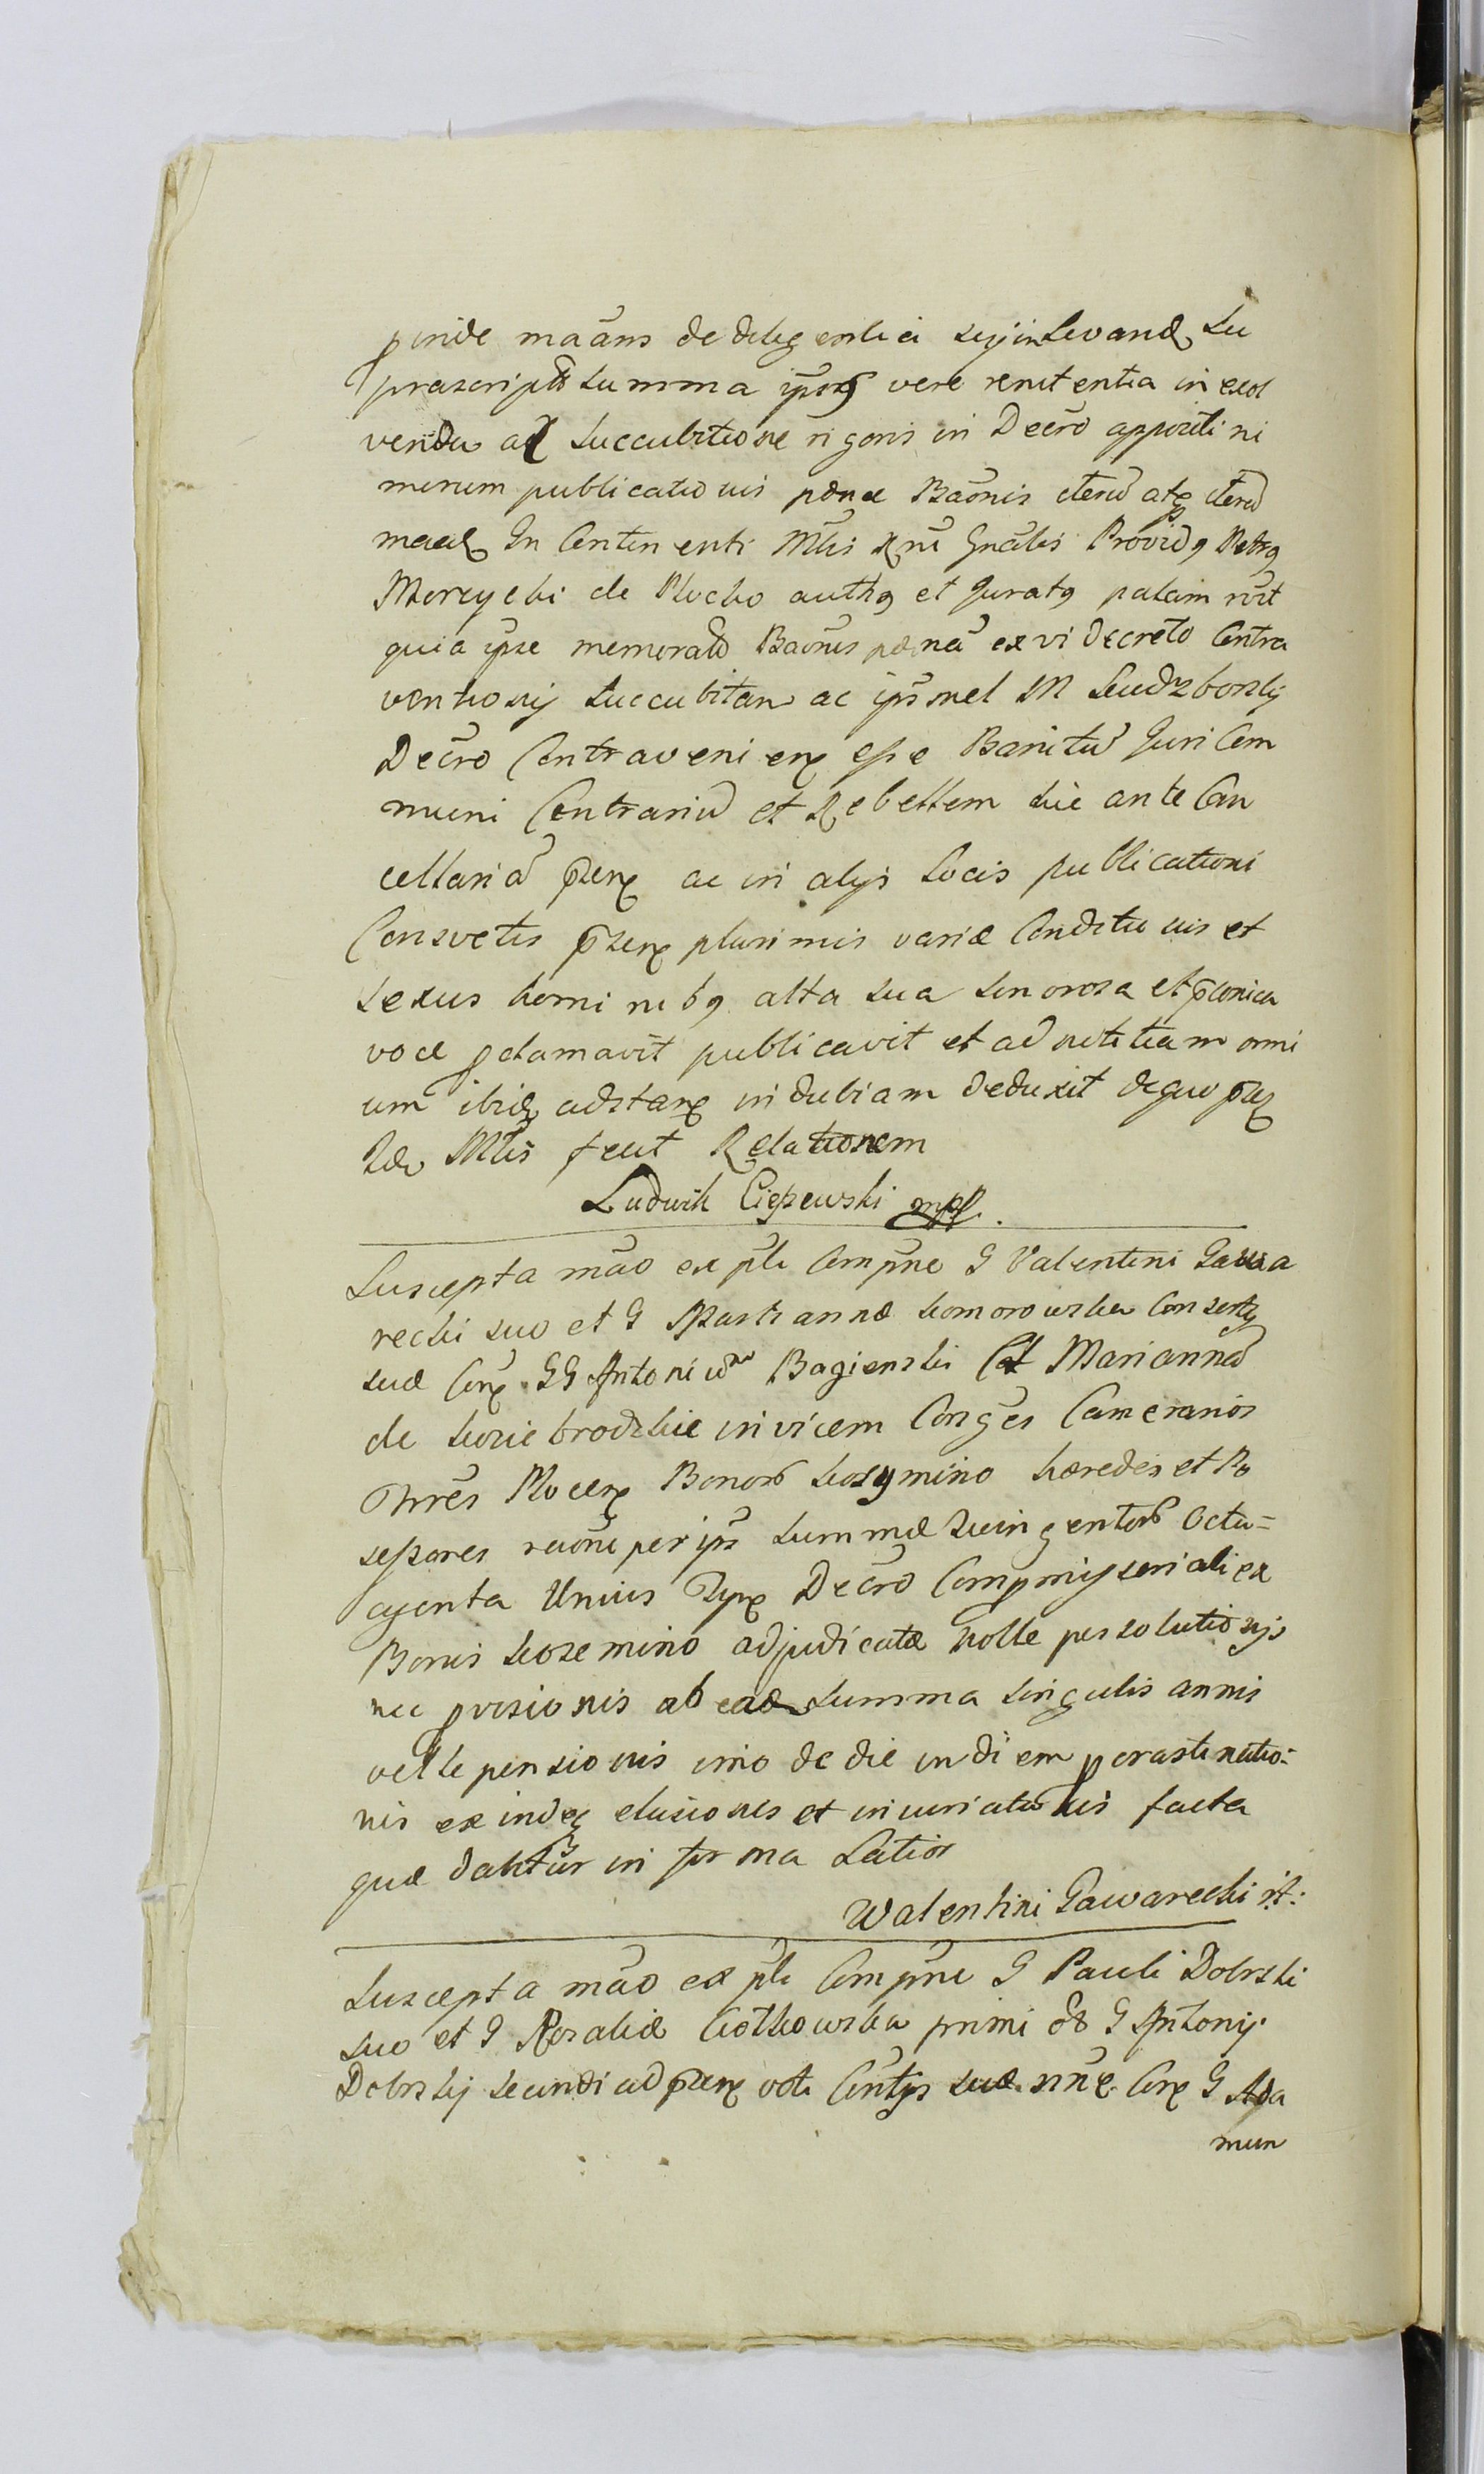 pinde maãns de diligentia sui in levand su
præscripta summa ipsor vere renitentia in exol
venda ac succubitione rigoris in Decro appositi ni
mirum publicationis pœnæ Baonis iterũ atq iterũ
maad In Continenti Mtlis Rni Gnalis Providq Petrq
Morcycki de Plocko authq et Juratq palam rvit
quia ipse memorato Baonis pœnã ex vi Decreto Contra
ventionij succubitam ac ipsmet M Sudzborskij
Decro Contraveniens esse Banitũ Juri Com
muni Contrariũ et Rebellem hic ante Can
cellariã præn ac in alijs Locis publicationi
Consvetis præn plurimis variæ Conditionis et
sexus hominibq alta sua sonorosa et pconica
voce pclamavit publicavit et ad notitiam omni
um ibid adstan indubiam deduxit de quo præ
Mtlis fecit Relationem
Ludwik Ciepewski mpp.
Suscepta mão ex pte Compne G Valentini Gawa
recki suo et G Mariannæ Komorowska Consortis
suæ Con GG Antoniũm Bagienski et Mariannã
de Kosiebrodzkie invicem Conges Cameranios
Trres Plocen Bonor Kosmino hæredes et Po
sessores raõne per ips summæ Quingentor Octu=
aginta Unius Tyn Decro Compmissoriali ex
Bonis Kosemino adjudicatæ nolle persolutionis
nec provisionis ab ead summa singulis annis
velle pensionis imo de die in diem pcrastinatio=
nis exindeq elusionis et iniuriationis facta
quæ dabitur in forma Latiori
Walentini Gawarecki rt:
Suscepta mão ex pte Compne G Pauli Dobrski
suo et G Rosaliæ Ciotkowska primi olb G Antonij
Dobrskij secundi ad præn voti Contgis suæ nne Con G Ada
mum